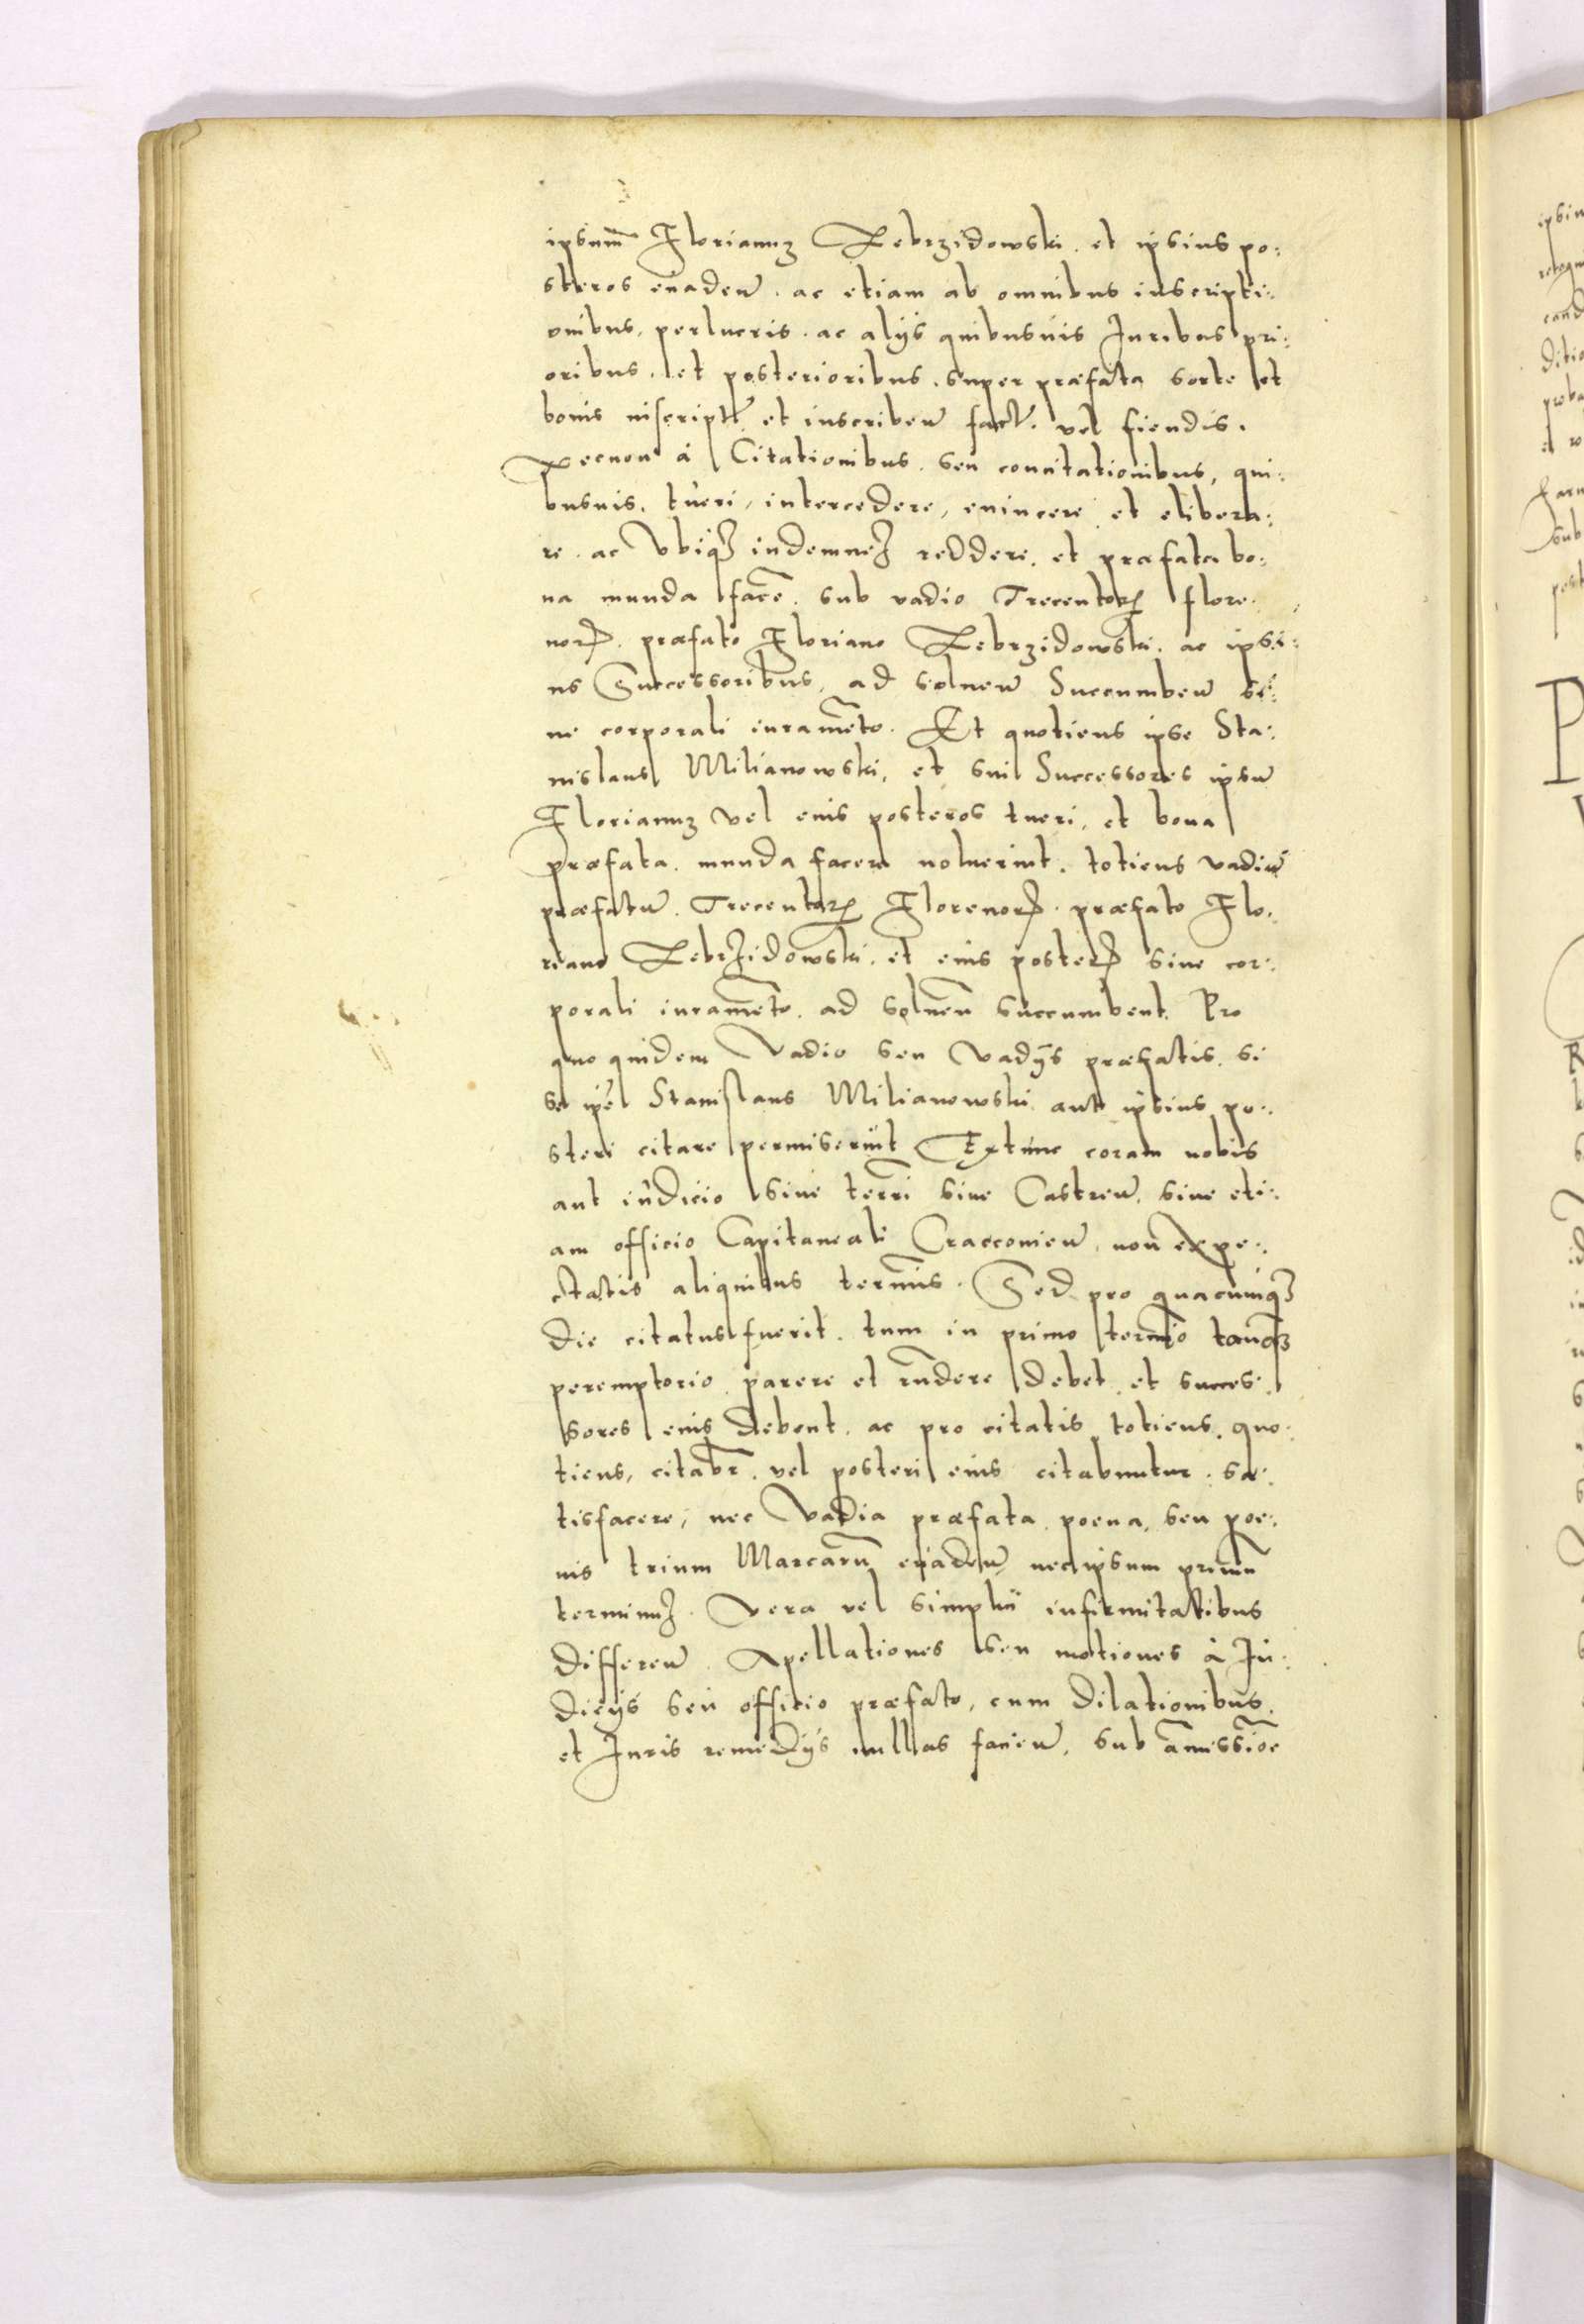 ipsum̄ Florianuȝ Zebrzidowski. et ipsius po:
steros euadeɯ. ac etiam ab omnibus inscripti:
onibus, perlucris. ac alijs quibusuis Iuribus pri:
oribus. et posterioribus, super præfata sorte et
bonis inscript̃ et inscribeɯ fact̃. vel fiendis.
Necnon à Citationibus. seu concitationibus, qui:
busuis. tueri, intercedere, euincere et elibera:
re. ac Vbiqȝ indemneȝ reddere. et præfata bo:
na munda facē. sub vadio Trecentoꝝ flore.
noꝝ. præfato Floriano Zebrzidowski. ac ipsi:
us Successoribus, ad solueɯ Succumbeɯ si:
ne corporali iuram̄eto. Et quotiens ipse Sta:
nislaus Milianowski, et sui Successores ipsū
Florianuȝ vel eius posteros tueri, et bona
præfata. munda facere noluerint. totiens vadiū
præfatū. Trecentoꝝ Florenoꝝ. præfato Flo.
riano Zebrzidowski. et eius posterꝭ sine cor:
porali iuram̄eto. ad soluen̄ succumbent. Pro
quo quidem Vadio seu Vadijs præfatis. si
se ip̄e Stanislaus Milianowski aut ipsius po:
steri citare permiserint Extunc coram nobis
aut iudicio siue terrī siue Castreɯ. siue eti:
am officio Capitaneali Cracconieɯ, non expe:
ctatis aliquibus term̄is. Sed pro quacunqȝ
die citatus fuerit. tum in primo term̄io tanqȝ
peremptorio parere et rn̄dere debet et succes.
sores eius debent. ac pro citatis totiens, quo:
tiens, citabr̄. vel posteri eius citabuntur. sa:
tisfacere, nec Vadia præfata poena, seu poe:
nis trium Marcarū euadeɯ nec ipsum primū
terminuȝ. Vera vel simplici infirmitatibus
differeɯ Apellationes seu motiones à Iu:
dicijs seu officio præfato, cum dilationibus.
et Iuris remedijs nullas facieɯ, sub am̄issiōe